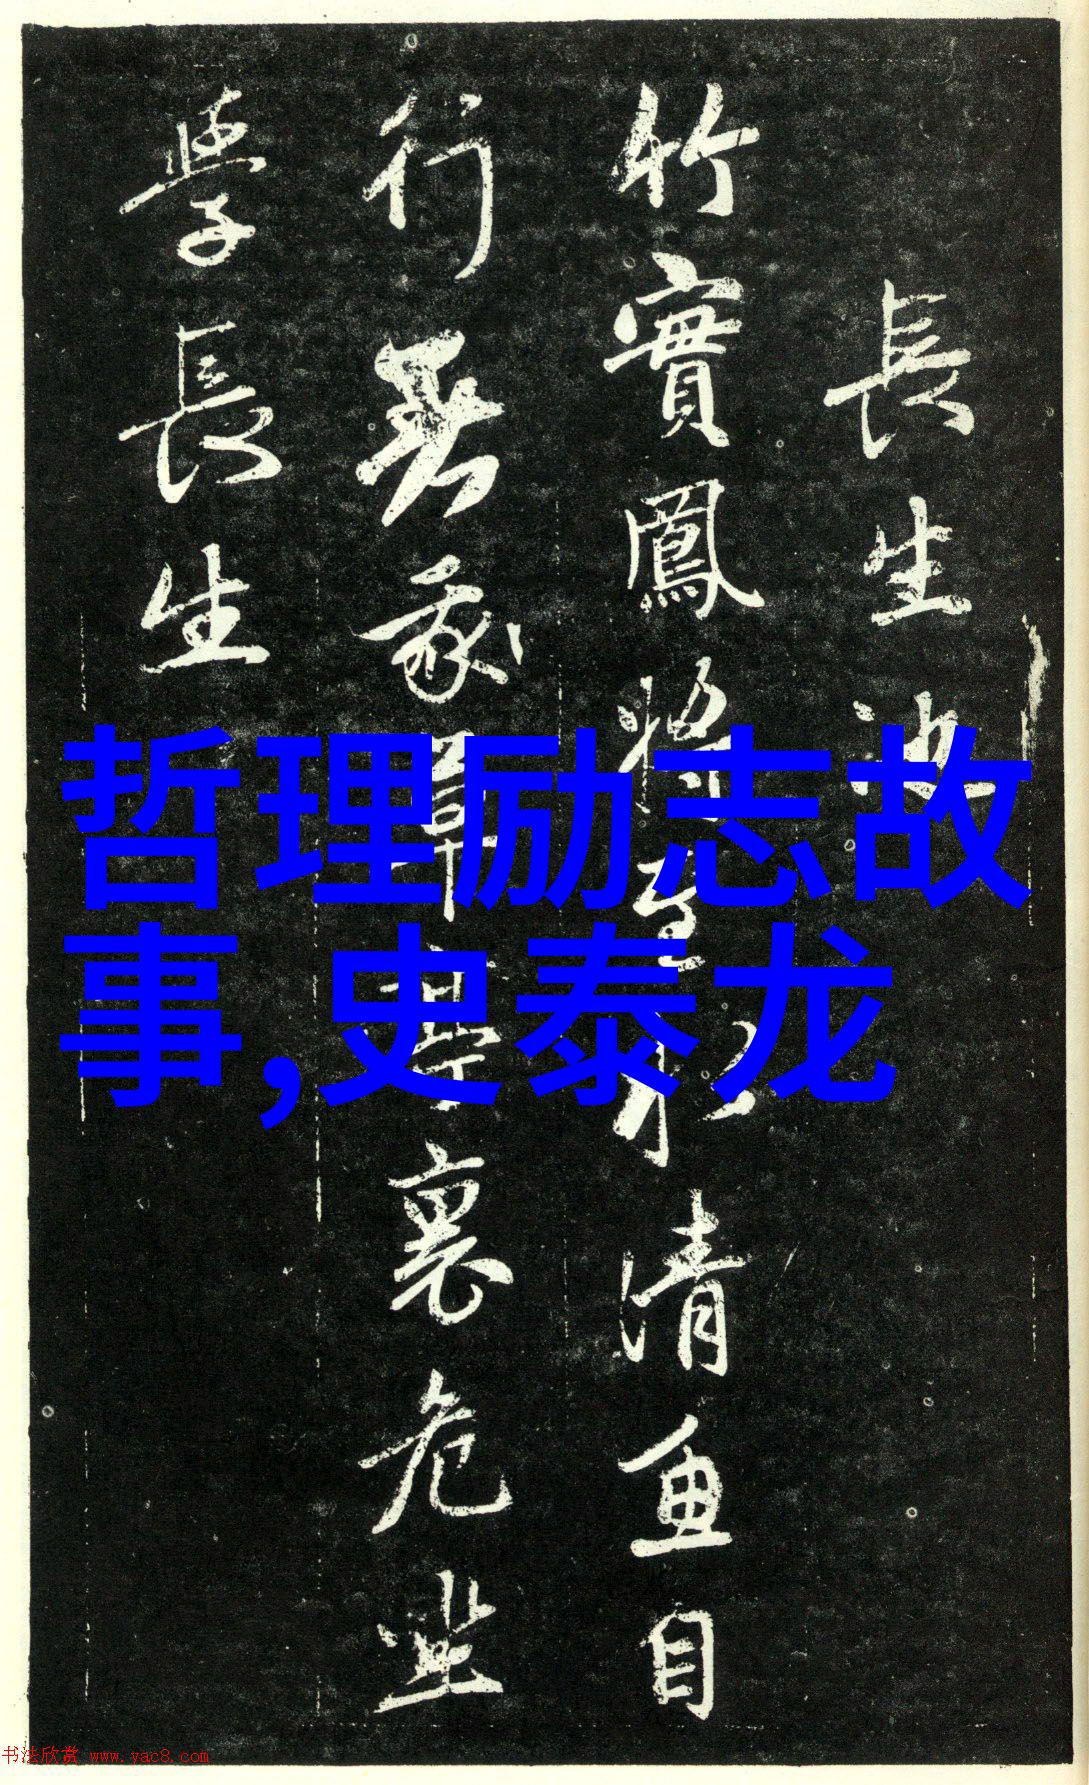 長生池
竹實鳳將至水清魚自
行裏危坐
學長生
哲理励志故
事,史泰龙
书法欣赏 www.yac8.com